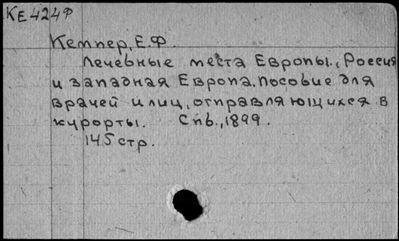 КЕ424Ф
Кемпер, Е.Ф.
Лечебные места Европы., Россия
и западная Европа. Пособие для
врачей и лиц, отправляющихся в
курорты. Спб., 1899.
145 стр.